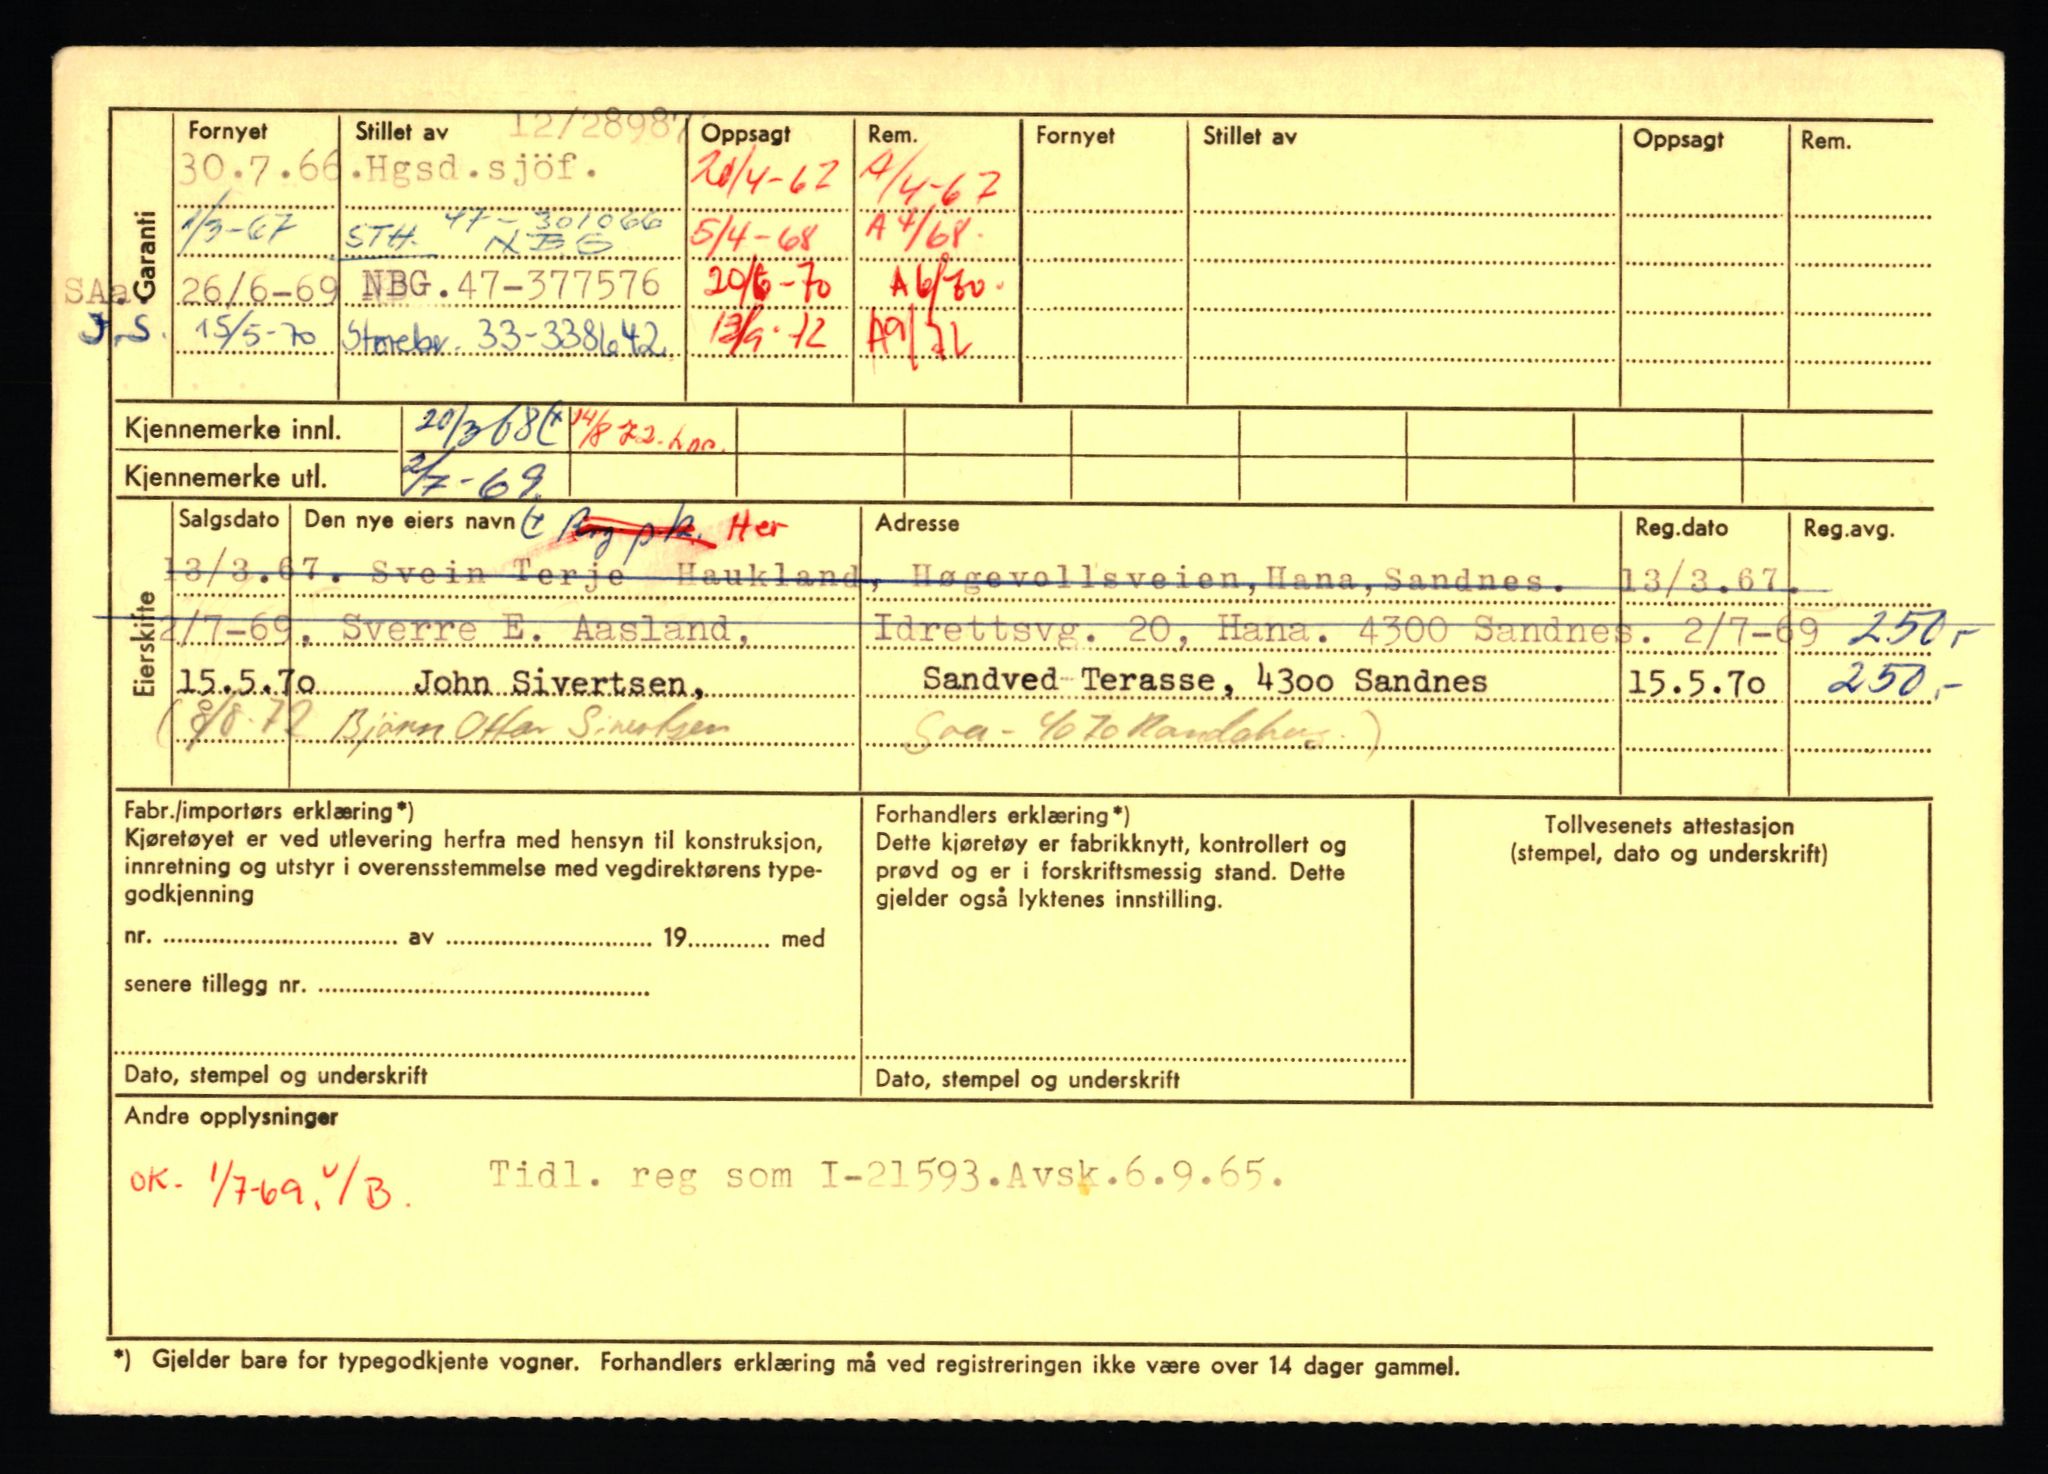 Garanti
Fornyet Stillet av 12/28987 Oppsagt Rem. Fornyet Stillet av Oppsagt Rem.
30.7.66. Hgsd.sjöf. 20/4-67 A/4-67
1/3-67 STH. 47-301066 NBG 5/4-68 A4/68.
SAa. 26/6-69 NBG.47-377576 20/6-70 A6/70.
J.S. 15/5-70 Storebr. 33-338642 13/9-72 A9/72
Kjennemerke innl. 20/3 68 14/8 72.
Kjennemerke utl. 2/7-69.
Eierskifte
Salgsdato Den nye eiers navn Her Adresse Reg.dato Reg.avg.
13/3.67. Svein Terje Haukland, Høgevollsveien,Hana,Sandnes. 13/3.67.
2/7-69, Sverre E. Aasland, Idrettsvg. 20, Hana. 4300 Sandnes. 2/7-69 250,-
15.5.70 John Sivertsen, Sandved Terasse, 4300 Sandnes 15.5.70 250,-
(8/8-72 Bjørn Ottar Sivertsen 4070 Randaberg.)
Fabr./importørs erklæring*)
Kjøretøyet er ved utlevering herfra med hensyn til konstruksjon,
innretning og utstyr i overensstemmelse med vegdirektørens type-
godkjenning
nr. av 19 med
senere tillegg nr.
Dato, stempel og underskrift
Forhandlers erklæring*)
Dette kjøretøy er fabrikknytt, kontrollert og
prøvd og er i forskriftsmessig stand. Dette
gjelder også lyktenes innstilling.
Dato, stempel og underskrift
Tollvesenets attestasjon
(stempel, dato og underskrift)
Andre opplysninger
OK. 1/7-69. Tidl. reg som I-21593.Avsk.6.9.65.
*) Gjelder bare for typegodkjente vogner. Forhandlers erklæring må ved registreringen ikke være over 14 dager gammel.